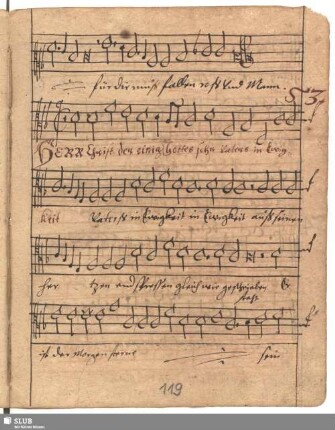 für dir muß fallen roß und Mann.
57
HERR Christ der einig Gottes sohn Vaters in Ewig
keit Vaterß in Ewigkeit in Ewigkeit auß seinem
her tzen endsprossen gleich wie geschrieben
steht
ist der Morgen sterne sein
119
SLUB